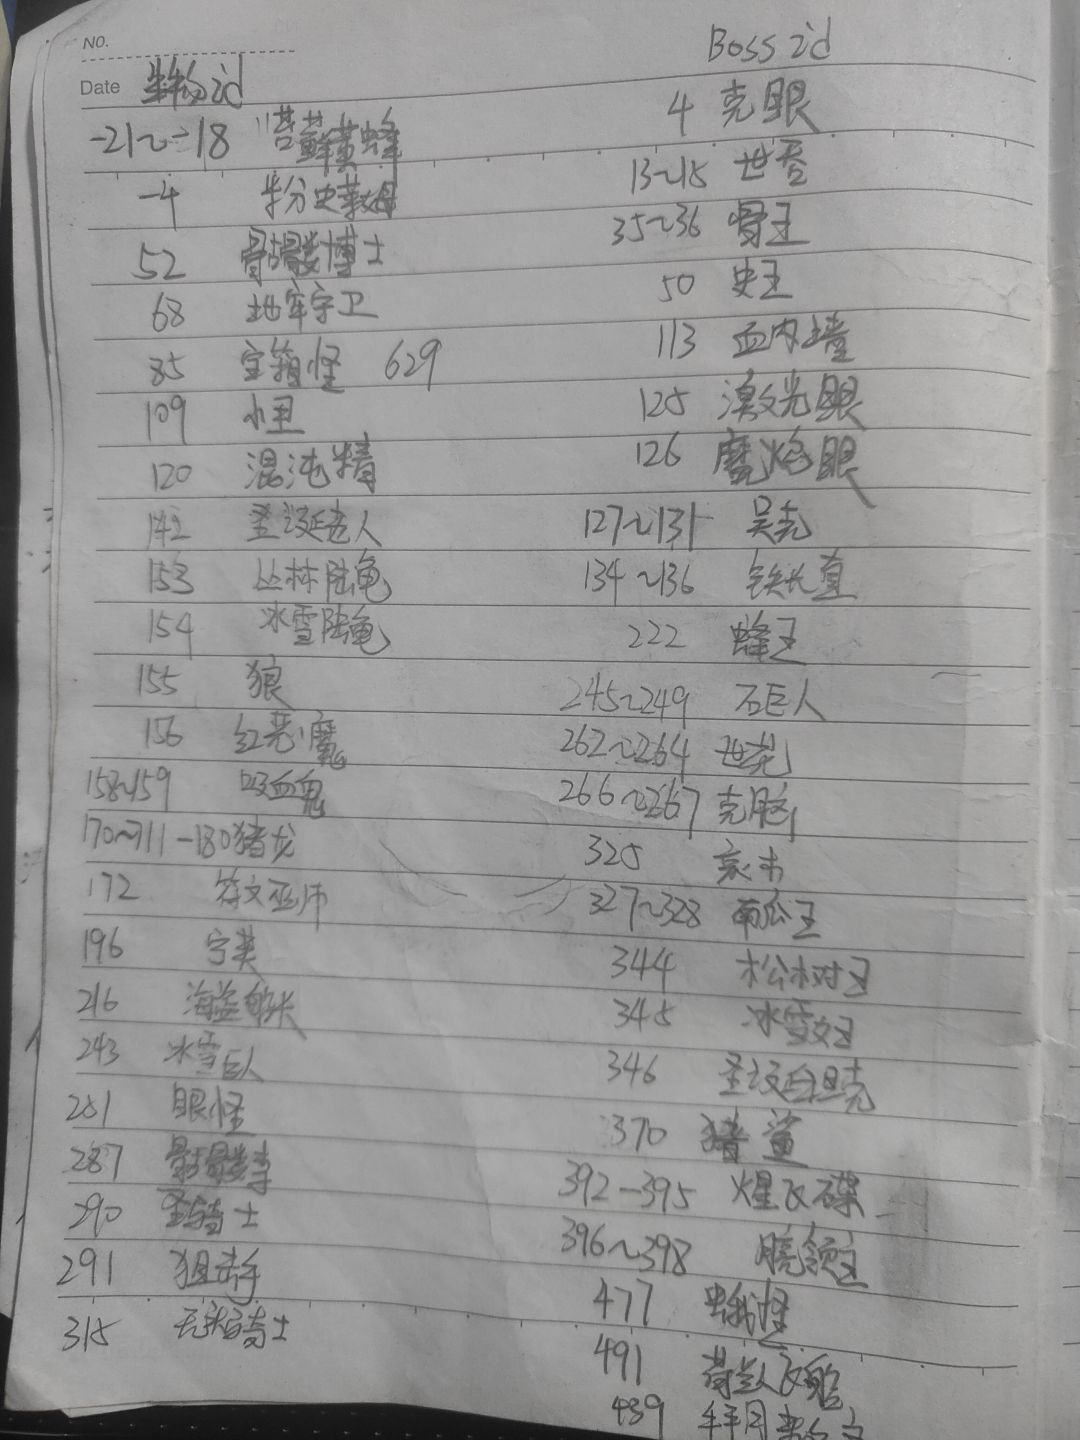 NO.
Date 生物id
-21~-18 苔藓黄蜂
-4 半分史莱姆
52 骷髅博士
68 地牢守卫
85 宝箱怪 629
109 小丑
120 混沌精
142 圣诞老人
153 丛林陆龟
154 冰雪陆龟
155 狼
156 红恶魔
158~159 吸血鬼
170~711-180 猪龙
172 符文巫师
196 宁芙
216 海盗船长
243 冰雪巨人
251 眼怪
287
290 圣骑士
291 狙击手
315 无头骑士
Boss id
4 克眼
13~15 世吞
35~36 骨王
50 史王
113 血肉墙
125 激光眼
126 魔焰眼
127~131 吴克
134~136 铁长直
222 蜂王
245~249 石巨人
262~264 世花
266~267 克脑
325 哀木
327~328 南瓜王
344 松树王
345 冰雪女王
346 圣诞坦克
370 猪鲨
392-395 火星飞碟
396~398 月亮领主
477 蛾怪
491 荷兰飞船
439 拜月教